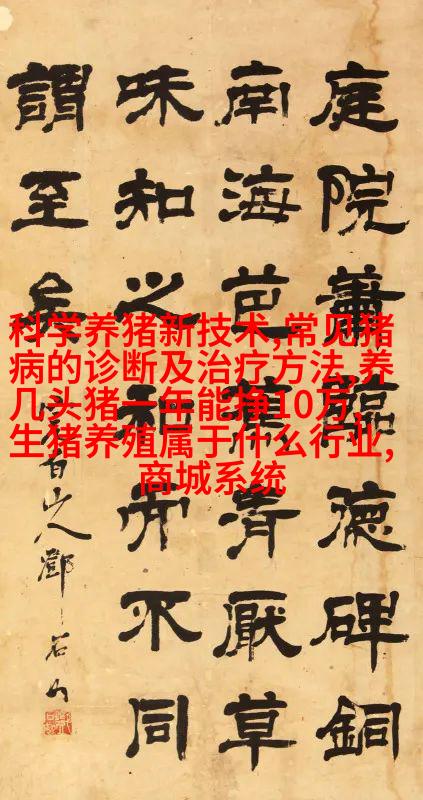 庭院蕭臨德碑銅
南海芭蕉清厭草
味知之和不同
謂至矣
完白山人鄧石如
科学养猪新技术,常见猪
病的诊断及治疗方法,养
几头猪一年能挣10万,
生猪养殖属于什么行业,
商城系统